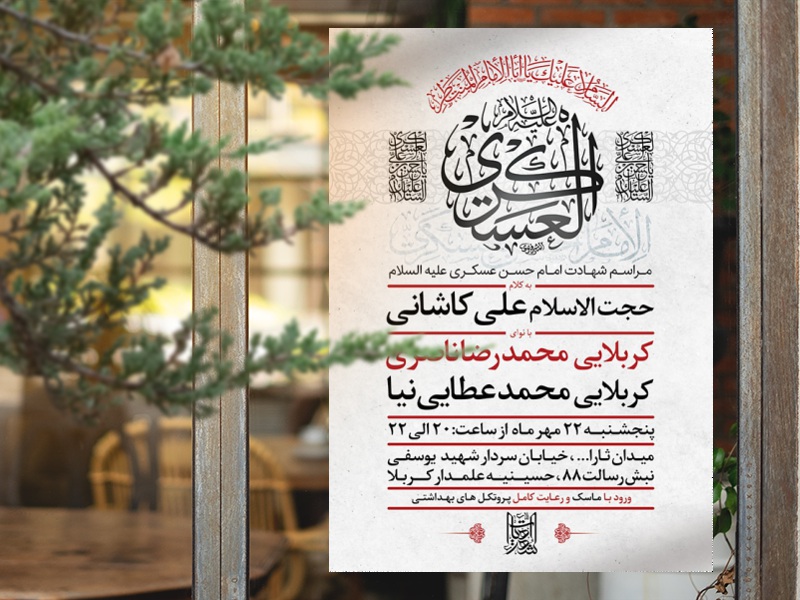 السلام علیک یا ایها الامام المنتظر
العسکری
علیه السلام
مراسم شهادت امام حسن عسکری علیه السلام
به کلام
حجت الاسلام علی کاشانی
با نوای
کربلایی محمدرضا ناصری
کربلایی محمد عطایی نیا
پنجشنبه ۲۲ مهر ماه از ساعت: ۲۰ الی ۲۲
میدان ثارا...، خیابان سردار شهید یوسفی
نبش رسالت ۸۸، حسینیه علمدار کربلا
ورود با ماسک و رعایت کامل پروتکل های بهداشتی